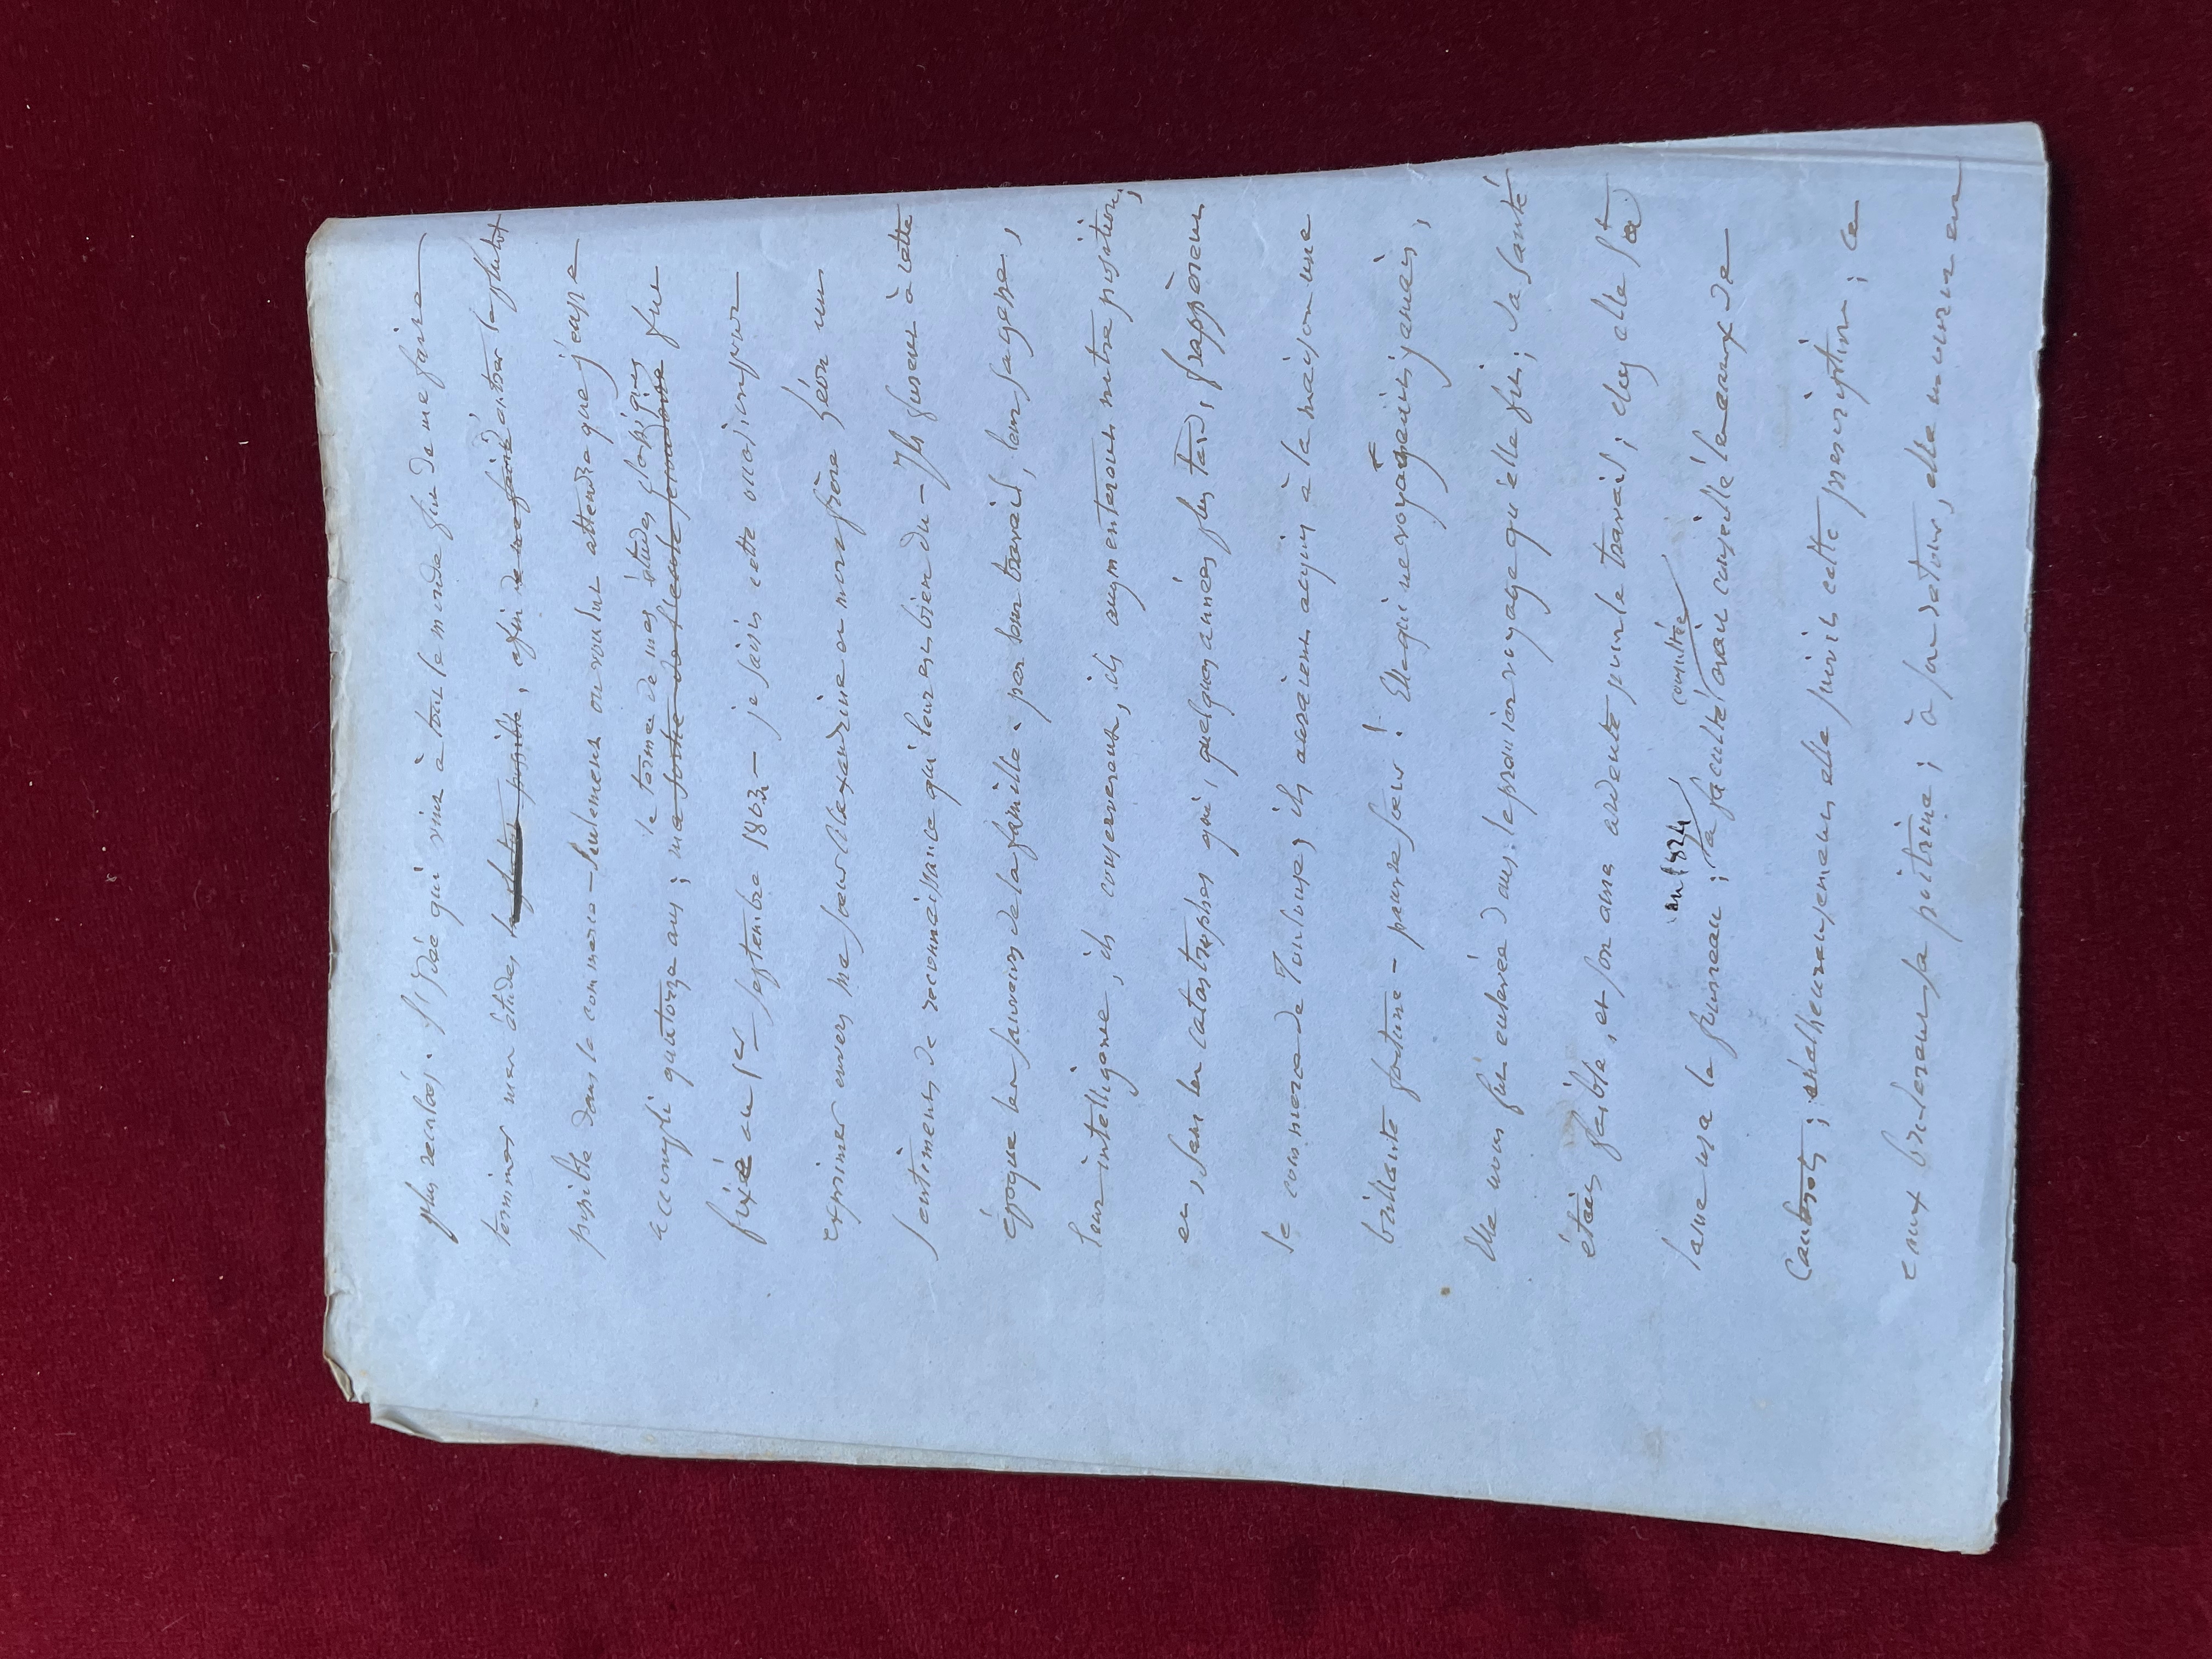 plus reculées. L'idée qui vint à tout le monde fut de me faire
terminer mes études le plutôt possible, afin de me faire entrer le plutôt
possible dans le commerce - seulement on voulut attendre que j'eusse
le terme de mes études classiques
accompli quatorze ans ; ma sortie de l'école fut donc que
fixé au 1er septembre 1823 - je saisis cette occasion pour
exprimer envers ma soeur Alexandrine et mon frère Léon un
sentiment de reconnaissance qui leur est bien du - Ils furent à cette
époque les sauveurs de la famille. par leur travail, leur sagesse,
leur intelligence, ils conservèrent, ils augmentèrent notre position,
et, sans les catastrophes qui, quelques années plus tard, frappèrent
le commerce de Toulouse, ils auraient acquis à la maison une
brillante fortune - pauvre soeur ! Elle qui ne voyageait jamais,
Elle nous fut enlevée dans le premier voyage qu'elle fit ; sa santé
était faible, et son âme ardente pour le travail ; chez elle la
en 1824 consultée
lame usa le fourreau ; la faculté avait conseillé les eaux de
Cauterets ; malheureusement elle suivit cette prescription ; ces
eaux brulèrent sa poitrine ; à son retour, elle mourut en